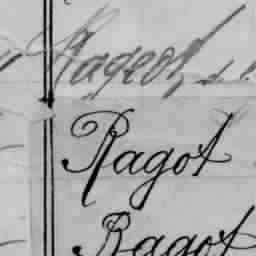 Rageot,
Ragot
Ragot